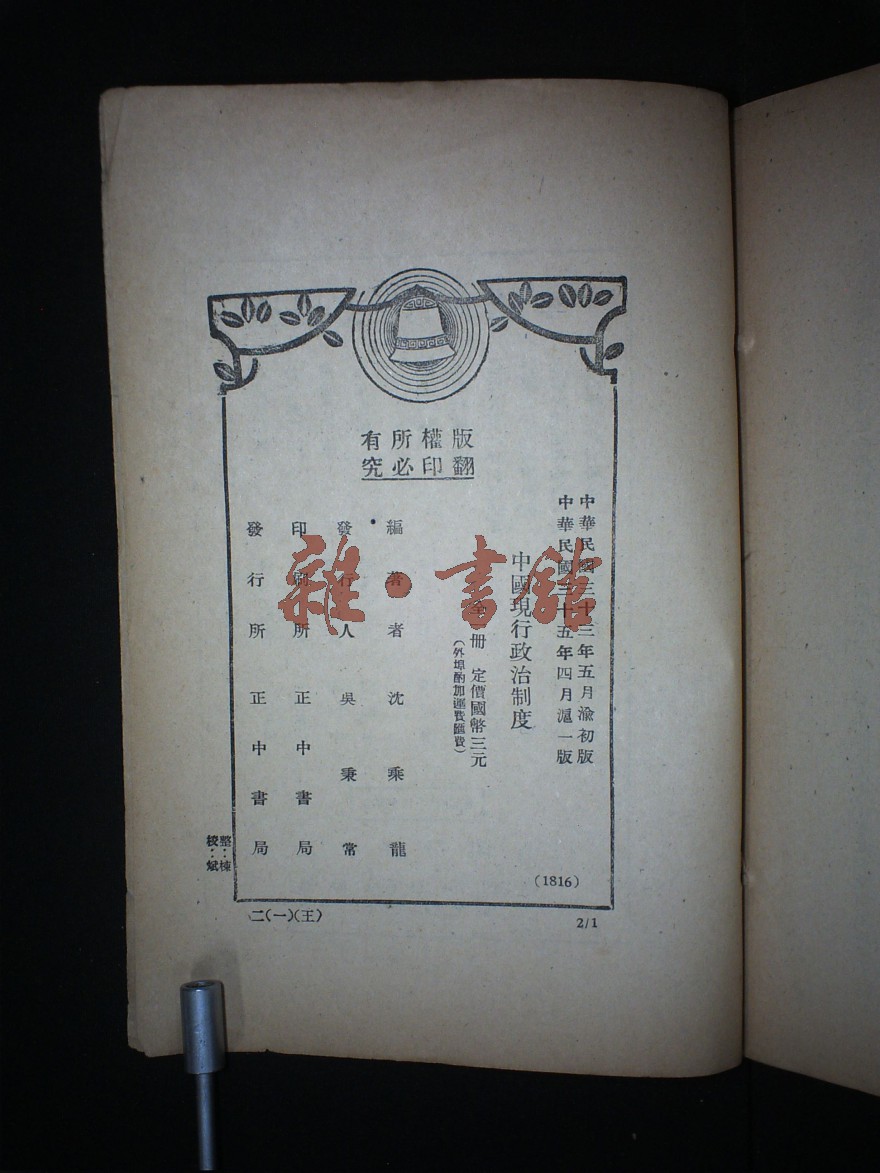 版權所有
翻印必究
中華民國三十三年五月渝初版
中華民國三十五年四月滬一版
中國現行政治制度
全一冊 定價國幣三元
(外埠酌加運費匯費)
編著者 沈乘龍
發行人 吳秉常
印刷所 正中書局
發行所 正中書局
(1816)
整:棟
校:斌
二(一)(王)
2/1
雜·書館